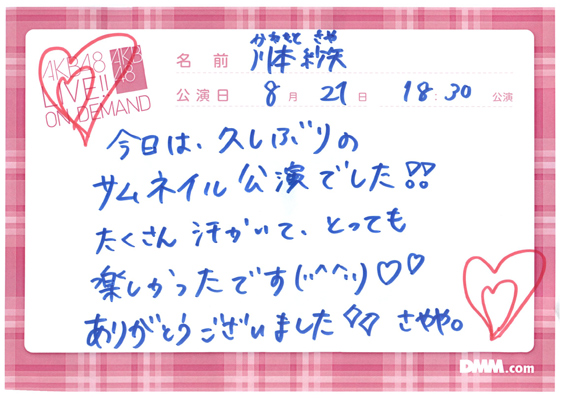 AKB48
LIVE!!
ON DEMAND
AKB
48
かわもと さや
名前 川本紗矢
公演日 8月21日 18:30 公演
今日は、久しぶりの
サムネイル公演でした!!
たくさん汗かいて、とっても
楽しかったです(;;^^;;)♡♡
ありがとうございました さやや。
DMM.com